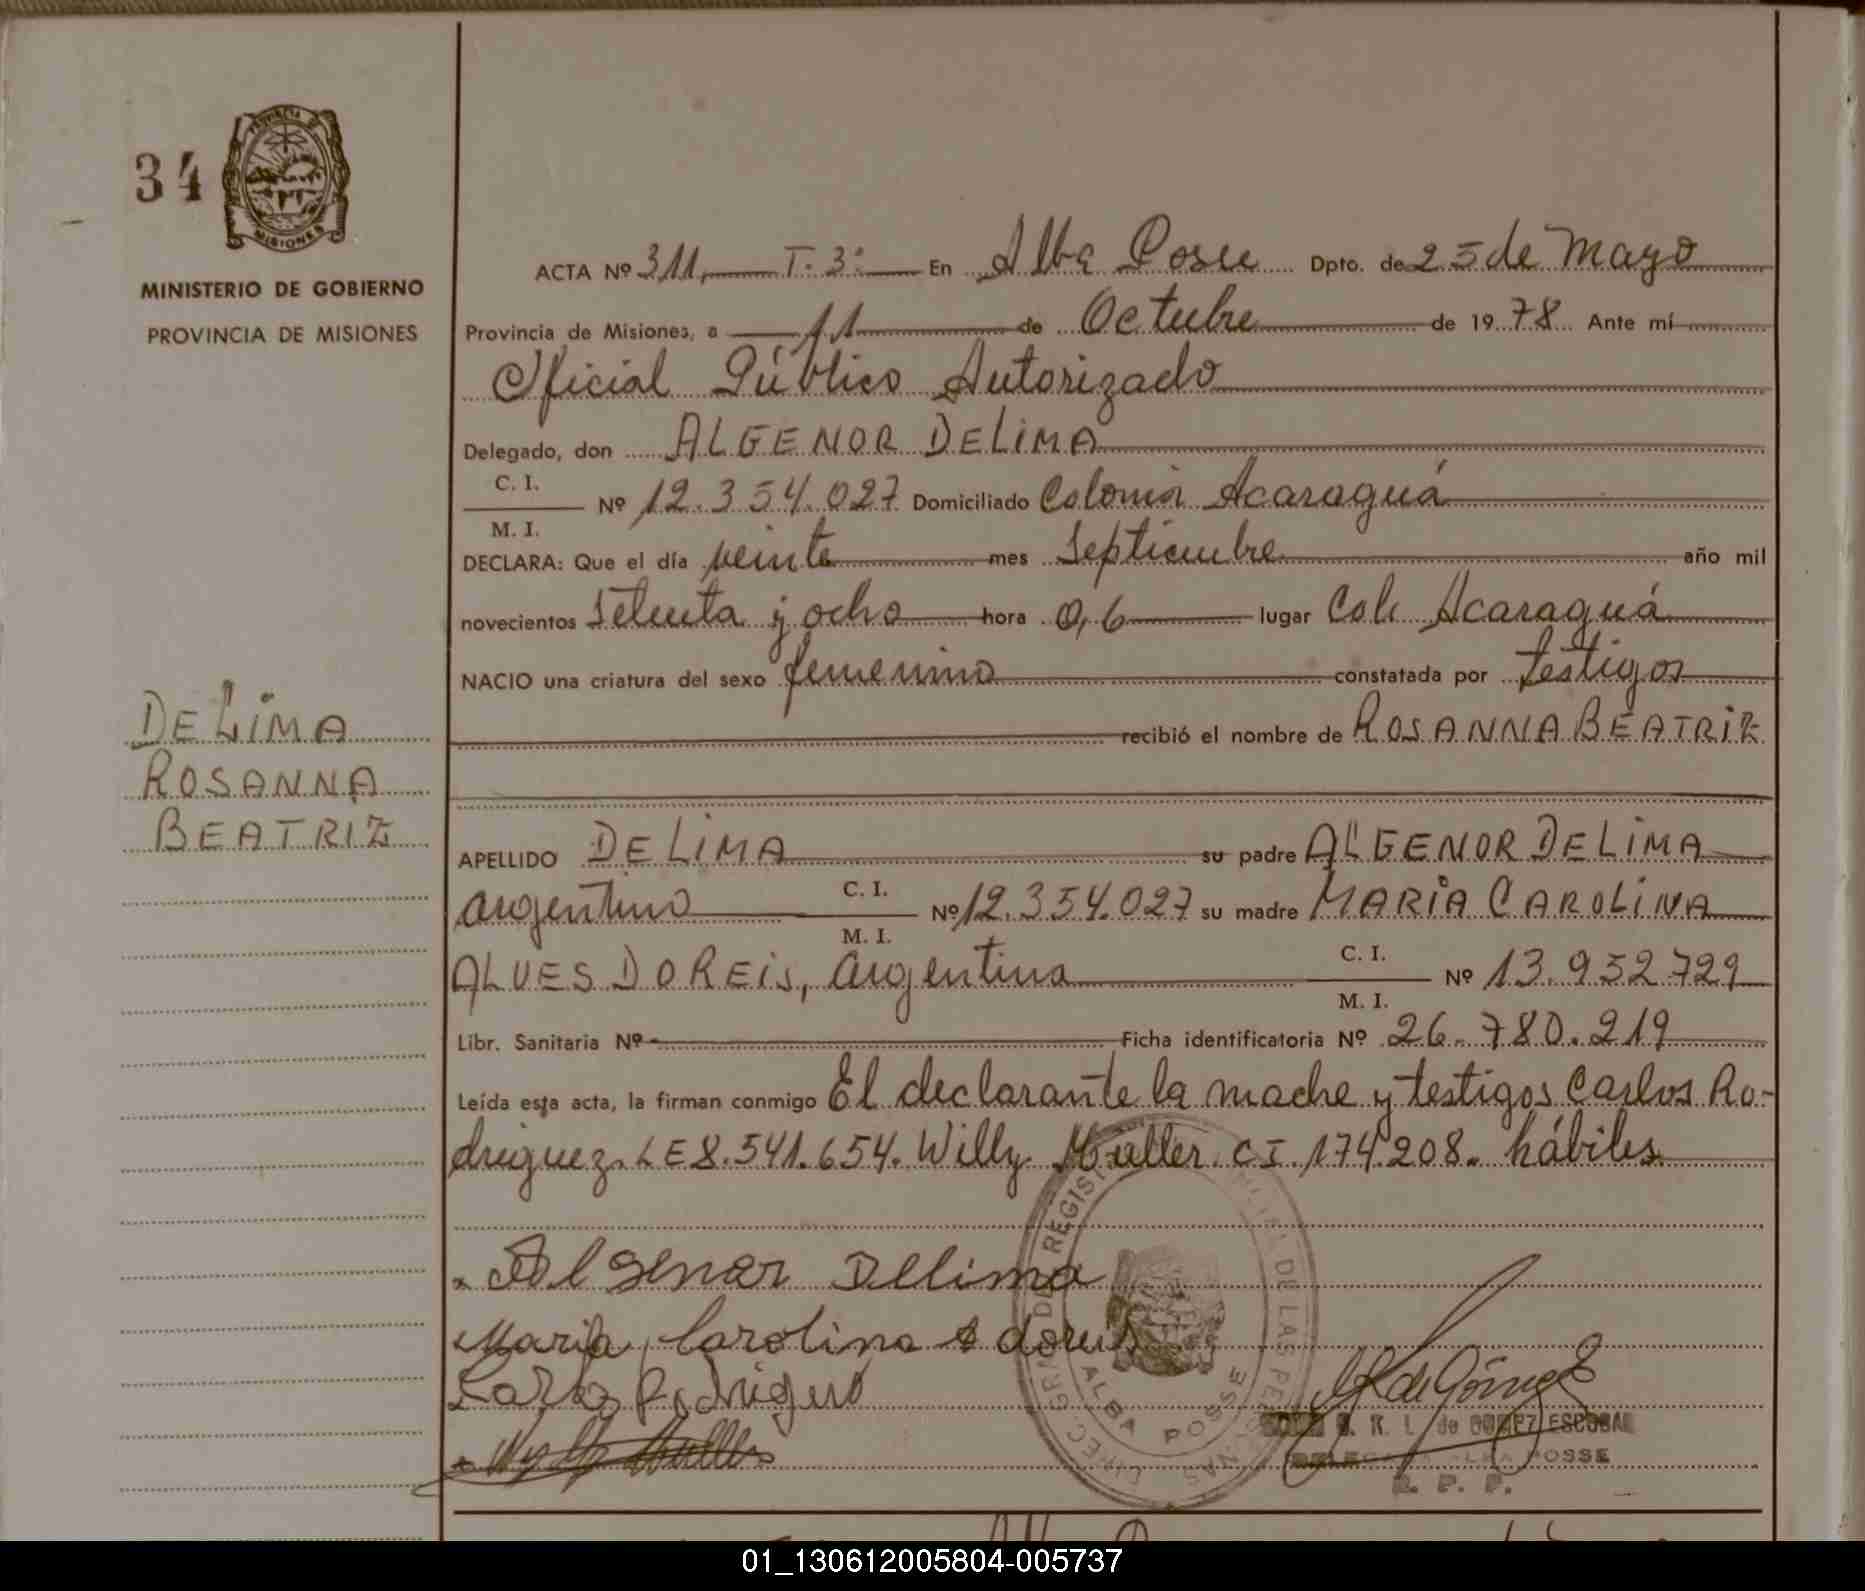 34
PROVINCIA DE
MISIONES
MINISTERIO DE GOBIERNO
PROVINCIA DE MISIONES
DE LIMA
ROSANNA
BEATRIZ
ACTA Nº 311, T. 3º En Alba Posse Dpto. de 25 de Mayo
Provincia de Misiones, a 11 de Octubre de 1978 Ante mí
Oficial Público Autorizado
Delegado, don ALGENOR DE LIMA
C. I.
Nº 12.354.027 Domiciliado Colonia Acaraguá
M. I.
DECLARA: Que el día veinte mes Septiembre año mil
novecientos setenta y ocho hora 0,6 lugar Col. Acaraguá
NACIO una criatura del sexo femenino constatada por testigos
recibió el nombre de ROSANNA BEATRIZ
APELLIDO DE LIMA su padre ALGENOR DE LIMA
argentino C. I. Nº 12.354.027 su madre MARIA CAROLINA
M. I.
ALVES DO REIS, argentina C. I. Nº 13.952.729
M. I.
Libr. Sanitaria Nº Ficha identificatoria Nº 26.780.219
Leída esta acta, la firman conmigo El declarante la madre y testigos Carlos Ro-
driguez. LE 8.541.654. Willy Müller CI. 174.208. hábiles
Algenor Delima
Maria Carolina A doreis
Carlos Rodriguez
DIREC. GRAL. DEL REGISTRO DE LAS PERSONAS
ALBA POSSE
de GOMEZ ESCOBAR
POSSE
R. P. P.
01_130612005804-005737